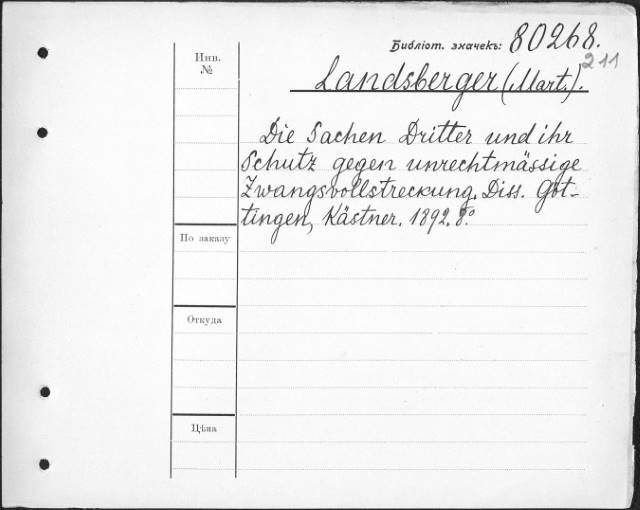 Библіот. значекъ: 80268.
211
Инв.
№
Landsberger (Mart.).
Die Sachen Dritter und ihr
Schutz gegen unrechtmässige
Zwangsvollstreckung. Diss. Göt-
tingen, Kästner. 1892. 8º
По заказу
Откуда
Цѣна